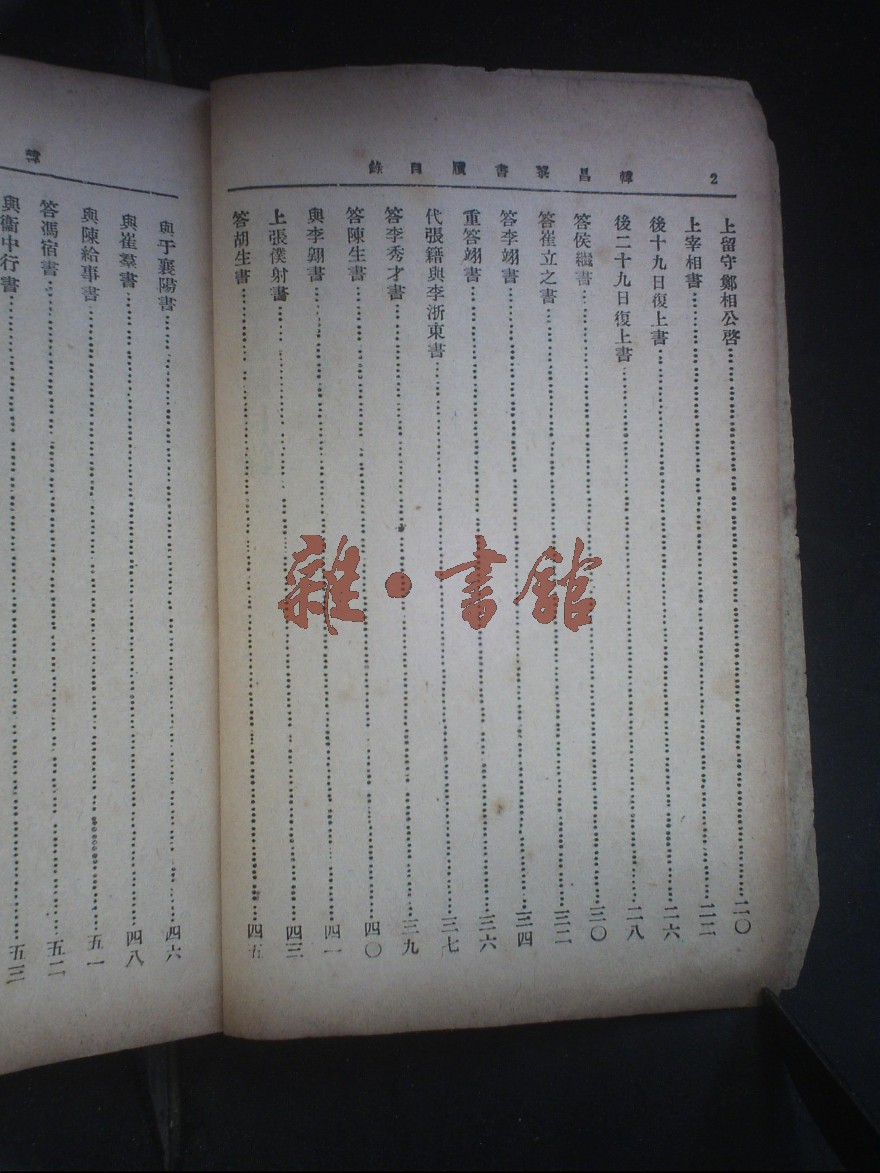 2　韓昌黎書牘目錄
上留守鄭相公啓……二〇
上宰相書……二二
後十九日復上書……二六
後二十九日復上書……二八
答侯繼書……三〇
答崔立之書……三二
答李翊書……三四
重答翊書……三六
代張籍與李浙東書……三七
答李秀才書……三九
答陳生書……四〇
與李翺書……四一
上張僕射書……四三
答胡生書……四五
韓
與于襄陽書……四六
與崔羣書……四八
與陳給事書……五一
答馮宿書……五二
與衞中行書……五三
雜·書館